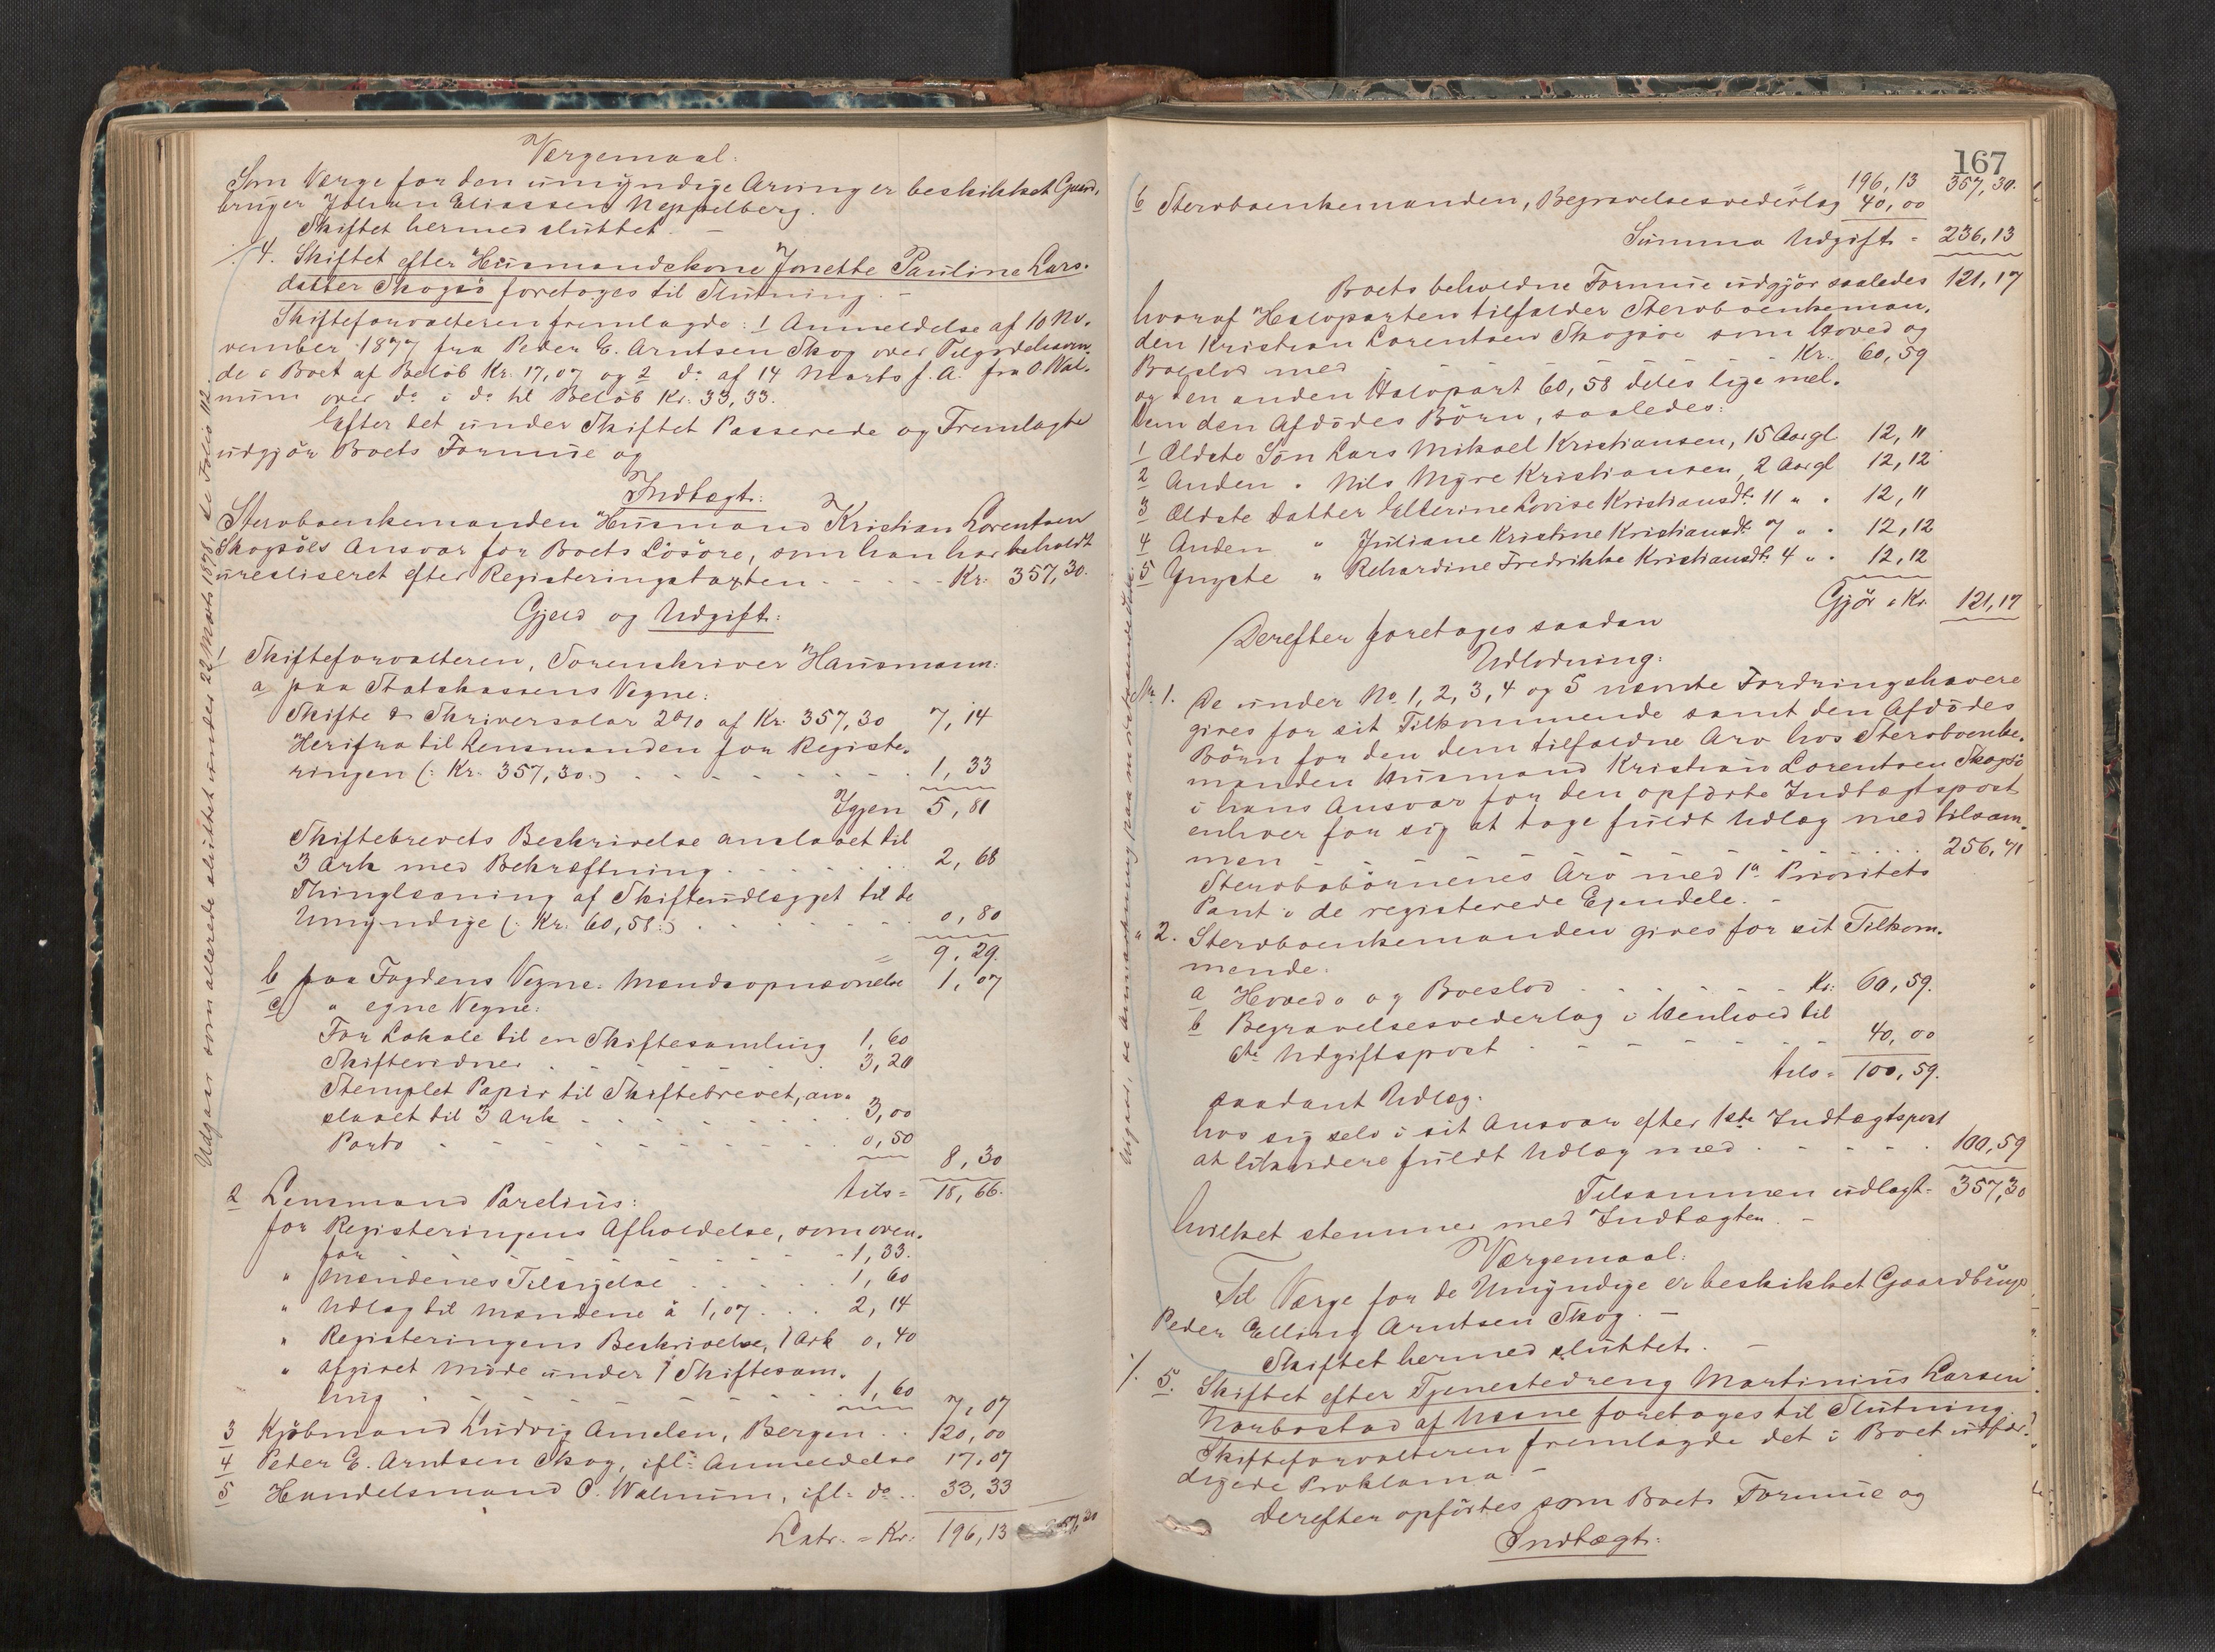 Værgemaal:
Som Værge for den umyndige Arving er beskikket Gaard-
bruger Johan Eliassen Neppelberg.
Skiftet hermed sluttet. –
4. Skiftet efter Husmandskone Jonette Pauline Lars-
datter Skogsö foretoges til Slutning. –
Skifteforvalteren fremlagde: 1 Anmeldelse af 10 No-
vember 1877 fra Peder E. Arntsen Skog over Tilgodehaven-
de i Boet af Beløb Kr. 17,07 og 2 do af 14 Marts f. A. fra O. Wal-
num over do i do til Beløb Kr. 33,33.
Efter det under Skiftet Passerede og Fremlagte
udgjør Boets Formue og
Indtægt:
Stervboenkemanden Husmand Kristian Lorentsen
Skogsöes Ansvar for Boets Løsøre, som han har beholdt
urealiseret efter Registeringstaxten - - - - Kr. 357,30.
Gjeld og Udgift:
1 Skifteforvalteren, Sorenskriver Hausmann:
a paa Statskassens Vegne:
Skifte & Skriversalær 2% af Kr. 357,30 7,14
Herifra til Lensmanden for Registe-
ringen (: Kr. 357,30:) - - - - - - 1,33
Igjen 5,81
Skiftebrevets Beskrivelse anslaaet til
3 Ark med Bekræftning . . . . . . 2,68
Thinglæsning af Skifteudlægget til de
Umyndige (: Kr. 60,58:) . . . . . . 0,80
= 9,29.
b paa Fogdens Vegne: Mændsopnævnelse 1,07
c " egne Vegne:
For Lokale til en Skiftesamling 1,60
Skiftevidner . . . . . . 3,20
Stemplet Papir til Skiftebrevet, an-
slaaet til 3 Ark - - - - - 3,00
Porto - - - - - - 0,50
8,30
tils = 18,66.
2 Lensmand Parelius:
for Registeringens Afholdelse, som oven-
for - - - - - - 1,33.
" Mændenes Tilsigelse . . . . . 1,60
" Udlæg til Mændene à 1,07 . . . 2,14
" Registeringens Beskrivelse, 1 Ark 0,40
" Afgivet Møde under 1 Skiftesam-
ling - - - - - - 1,60
7,07
3 Kjøbmand Ludvig Amelen, Bergen . . 120,00
4 Peder E. Arntsen Skog, ifl: Anmeldelse 17,07
5 Handelsmand O. Walnum, ifl: do . . 33,33
Latr. = Kr: 196,13 357,30
Udgaar som allerede sluttet under 22 Marts 1878, se Folio 112.
167
= 196,13 357,30.
6 Stervboenkemanden, Begravelsesvederlag 40,00
Summa Udgift = 236,13
Boets beholdne Formue udgjør saaledes 121,17
hvoraf Halvparten tilfalder Stervboenkeman-
den Kristian Lorentsen Skogsøe som Hoved og
Boeslod med - - - - - - Kr. 60,59
og den anden Halvpart 60,58 deles lige mel-
lem den Afdødes Børn, saaledes:
1 Ældste Søn Lars Mikael Kristiansen, 15 Aar gl 12,11
2 Anden " Nils Myre Kristiansen, 2 Aar gl 12,12
3 Ældste Datter Ellerine Lovise Kristiansdt. 11 " " 12,11
4 Anden " Juliane Kristine Kristiansdt. 7 " " 12,12
5 Yngste " Rikardine Fredrikke Kristiansdt. 4 " " 12,12
Gjør i Kr. 121,17
Derefter foretoges saadan
Udlodning:
No. 1. De under No. 1, 2, 3, 4 og 5 nævnte Fordringshavere
gives for sit Tilkommende samt den Afdødes
Børn for den dem tilfaldne Arv hos Stervboenke-
manden Husmand Kristian Lorentsen Skogsö
i hans Ansvar for den opførte Indtægtspost
enhver for sig at tage fuldt Udlæg med tilsam-
men - - - - - - 256,71
Stervbobørnenes Arv med 1ste Prioritets
Pant i de registerede Ejendele. –
" 2. Stervboenkemanden gives for sit Tilkom-
mende:
a Hoved og Boeslod . . . . . Kr. 60,59.
b Begravelsesvederlag i Henhold til
6te Udgiftspost - - - - - 40,00
tils = 100,59.
saadant Udlæg:
hos sig selv i sit Ansvar efter 1ste Indtægtspost
at likvidere fuldt Udlæg med . . . . . 100,59
Tilsammen udlagt = 357,30
hvilket stemmer med Indtægten. –
Værgemaal:
Til Værge for de Umyndige er beskikket Gaardbruger
Peder Elling Arntsen Skog. –
Skiftet hermed sluttet. –
5. Skiftet efter Tjenestedreng Martinius Larsen
Narbostad af Hasne foretoges til Slutning.
Skifteforvalteren fremlagde det i Boet udfær-
digede Proklama –
Derefter opførtes som Boets Formue og
Indtægt: